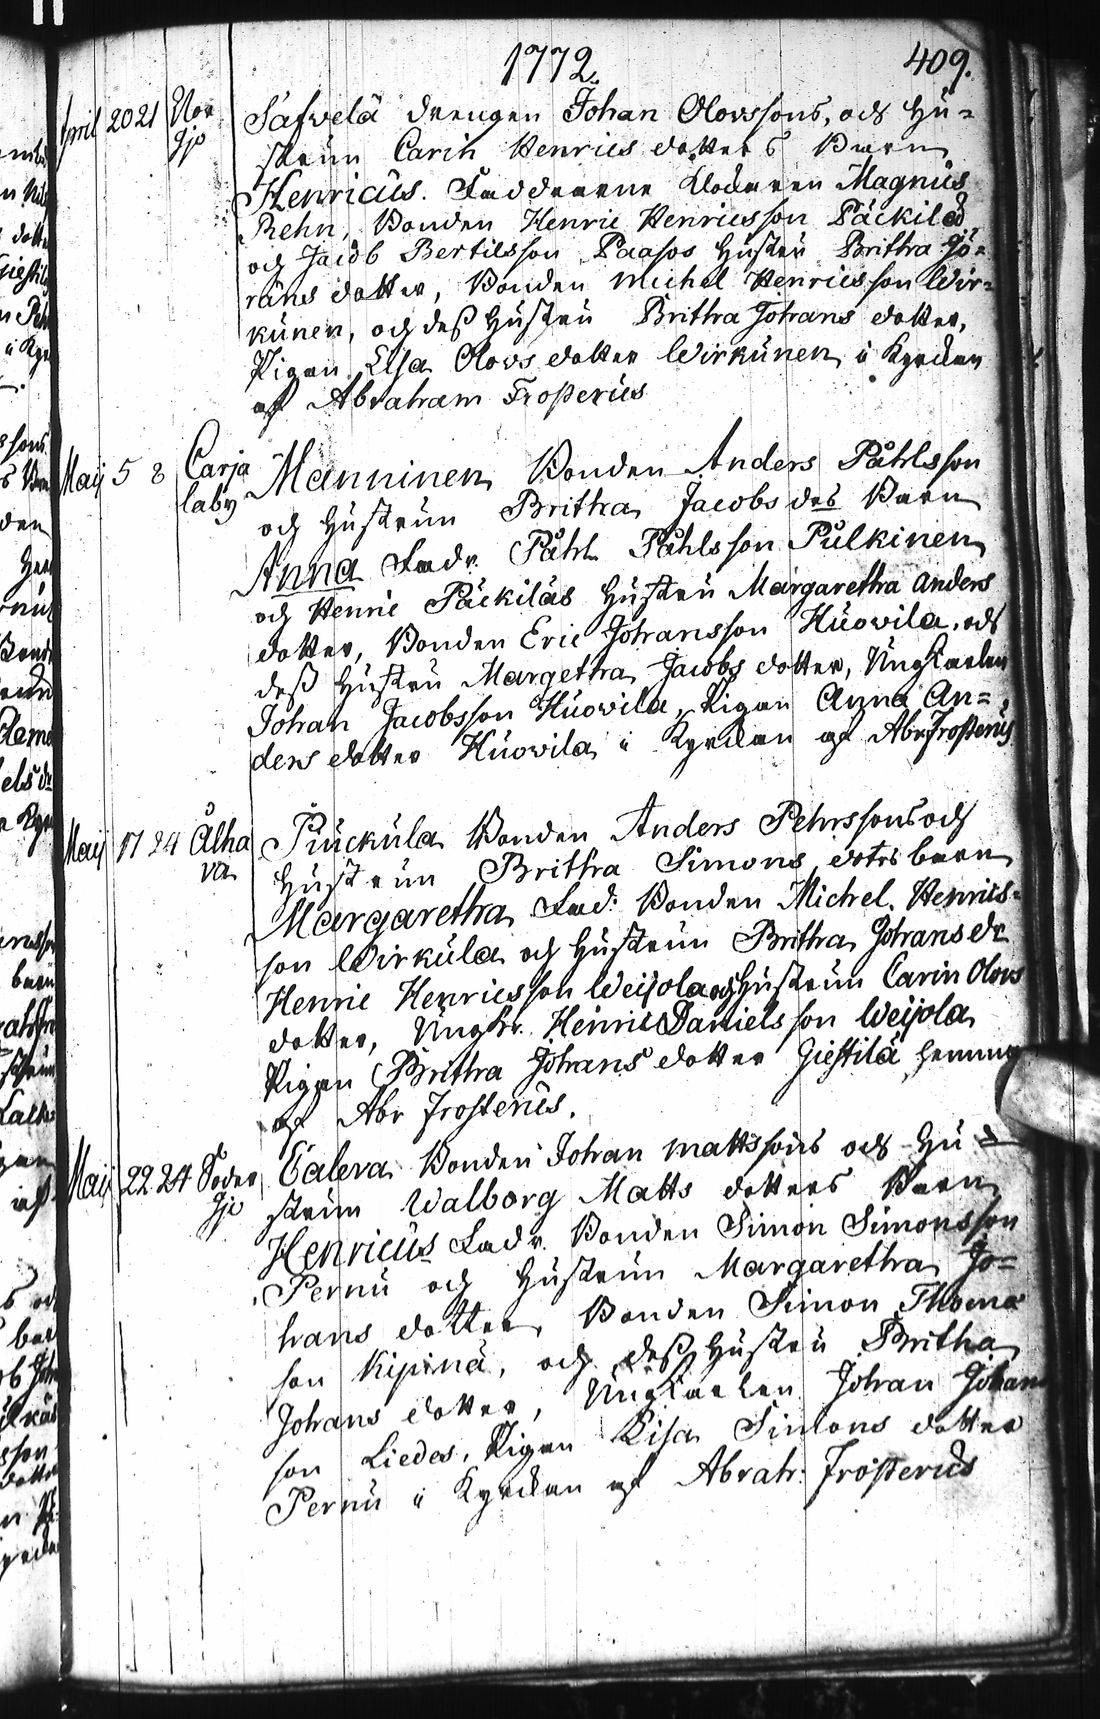 1772. 409.
April 20 21 Nor Safvela drengen Johan Olovssons, och Hu=
gjo strun Carin Henrics dotters Barn
Henricus. Faddrarne Klockaren Magnus
Rehn, Bonden Henric Henricsson Päckilä
och Jacob Bertilsson Paasos Hustru Brithra Jö=
rans dotter, Bonden Michel Henricsson Wir=
kunen, och dess Hustru Brithra Johans dotter,
Pigan Elsa Olovs dotter Wirkunen i Kyrckan
af Abraham Frosterus
Maij 5 8 Carja Manninen Bonden Anders Påhlsson
laby och Hustrun Brithra Jacobs des Barn
Anna Fadr. Påhl Påhlsson Pulkinen
och Henric Päckiläs Hustru Margaretha Anders
dotter, Bonden Eric Johansson Huovila, och
dess Hustru Margetha Jacobs dotter, Ungkarlen
Johan Jacobsson Huovila, Pigan Anna An=
ders dotter Huovila i Kyrckan af Abr Frosterus
Maij 17 24 Ålha Puckula Bonden Anders Pehrssons och
va Hustrun Brithra Simons dotrs barn
Margaretha Fad: Bonden Michel Henrics=
son Wirkula och Hustrun Brithra Johans dr
Henric Henricsson Weijola och Hustrun Carin Olovs
dotter, Ungkr. Henric Danielsson Weijola
Pigan Brithra Johans dotter Giestilä hemma
af Abr Frosterus.
Maij 22 24 Söder Caleva Bonden Johan Mattssons och Hu
gjo strun Walborg Matts dotters Barn
Henricus Fadr. Bonden Simon Simonsson
Pernu och Hustrun Margaretha Jo=
hans dotter, Bonden Simon Thoma
son Kipinä, och dess Hustru Britha
Johans dotter, Ungkarlen Johan Johan
son Liedes, Pigan Lisa Simons dotter
Pernu i Kyrckan af Abrah: Frosterus